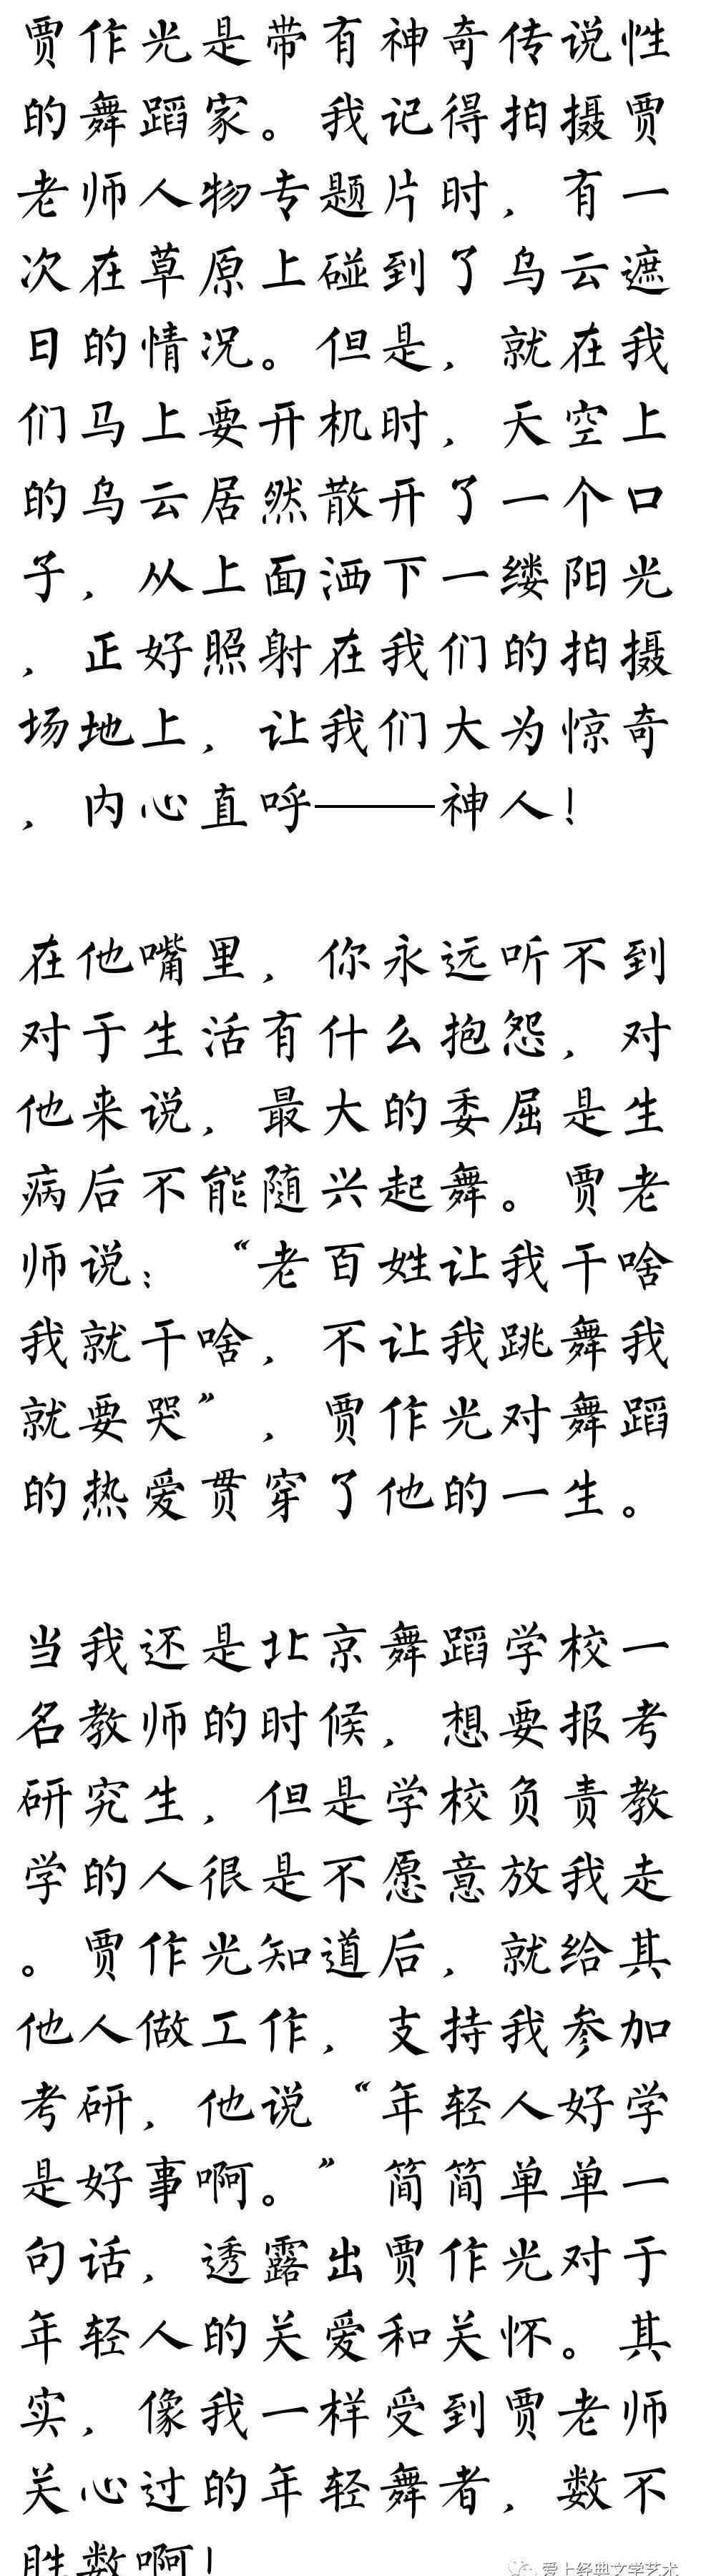 贾作光是带有神奇传说性
的舞蹈家。我记得拍摄贾
老师人物专题片时，有一
次在草原上碰到了乌云遮
日的情况。但是，就在我
们马上要开机时，天空上
的乌云居然散开了一个口
子，从上面洒下一缕阳光
，正好照射在我们的拍摄
场地上，让我们大为惊奇
，内心直呼——神人！
在他嘴里，你永远听不到
对于生活有什么抱怨，对
他来说，最大的委屈是生
病后不能随兴起舞。贾老
师说：“老百姓让我干啥
我就干啥，不让我跳舞我
就要哭”，贾作光对舞蹈
的热爱贯穿了他的一生。
当我还是北京舞蹈学校一
名教师的时候，想要报考
研究生，但是学校负责教
学的人很是不愿意放我走
。贾作光知道后，就给其
他人做工作，支持我参加
考研，他说“年轻人好学
是好事啊。”简简单单一
句话，透露出贾作光对于
年轻人的关爱和关怀。其
实，像我一样受到贾老师
关心过的年轻舞者，数不
胜数啊！
爱上经典文学艺术